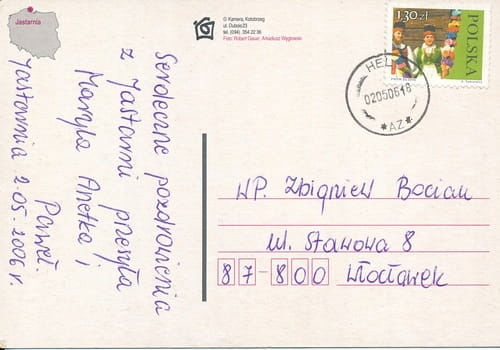 Jastarnia
© Kamera, Kołobrzeg
ul. Dubois23
tel. (094) 354 22 36
Foto: Robert Gauer, Arkadiusz Węgłowski
1,30 zł
POLSKA
HEL
020506 18
* AZ *
Serdeczne pozdrowienia
z Jastarni przesyła
Maryla Anetka i
Paweł.
Jastarnia 2.05.2006 r.
WP. Zbigniew Bociań
ul. Stawowa 8
87-800 Włocławek